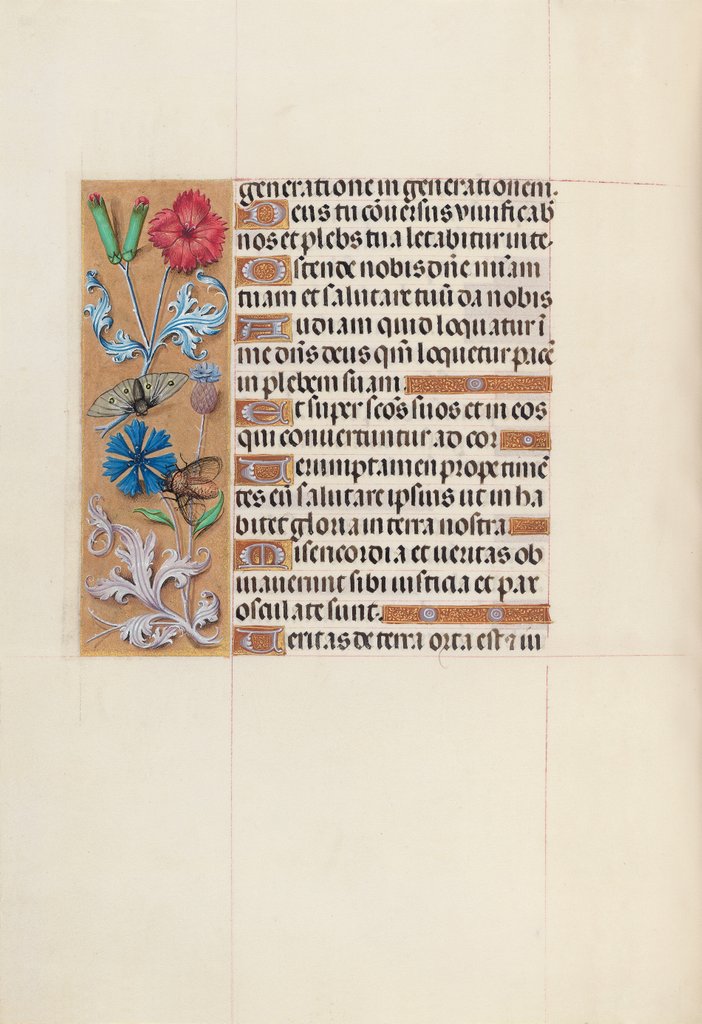 generatione in generationem.
Deus tu cōuersus viuificab
nos et plebs tua letabitur in te.
Ostende nobis dn̄e mi̅am
tuam et salutare tuū da nobis
Audiam quid loquatur ī
me dn̄s deus qm̄ loquetur pacē
in plebem suam.
Et super scōs suos et in eos
qui conuertuntur ad cor
Verumptamen prope timē
tes eū salutare ipsius ut inha
bitet gloria in terra nostra
Misericordia et ueritas ob
uiauerunt sibi iusticia et pax
osculate sunt.
Veritas de terra orta est ⁊ iu